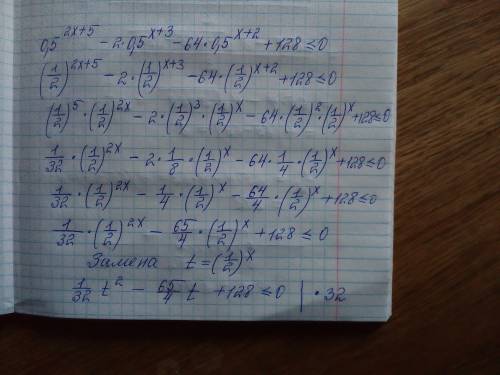 0,5^(2x+5) - 2·0,5^(x+3) - 64·0,5^(x+2) + 128 ≤ 0
(1/2)^(2x+5) - 2·(1/2)^(x+3) - 64·(1/2)^(x+2) + 128 ≤ 0
(1/2)^5·(1/2)^(2x) - 2·(1/2)^3·(1/2)^x - 64·(1/2)^2·(1/2)^x + 128 ≤ 0
1/32·(1/2)^(2x) - 2·1/8·(1/2)^x - 64·1/4·(1/2)^x + 128 ≤ 0
1/32·(1/2)^(2x) - 1/4·(1/2)^x - 64/4·(1/2)^x + 128 ≤ 0
1/32·(1/2)^(2x) - 65/4·(1/2)^x + 128 ≤ 0
Замена t = (1/2)^x
1/32 t^2 - 65/4 t + 128 ≤ 0 | · 32